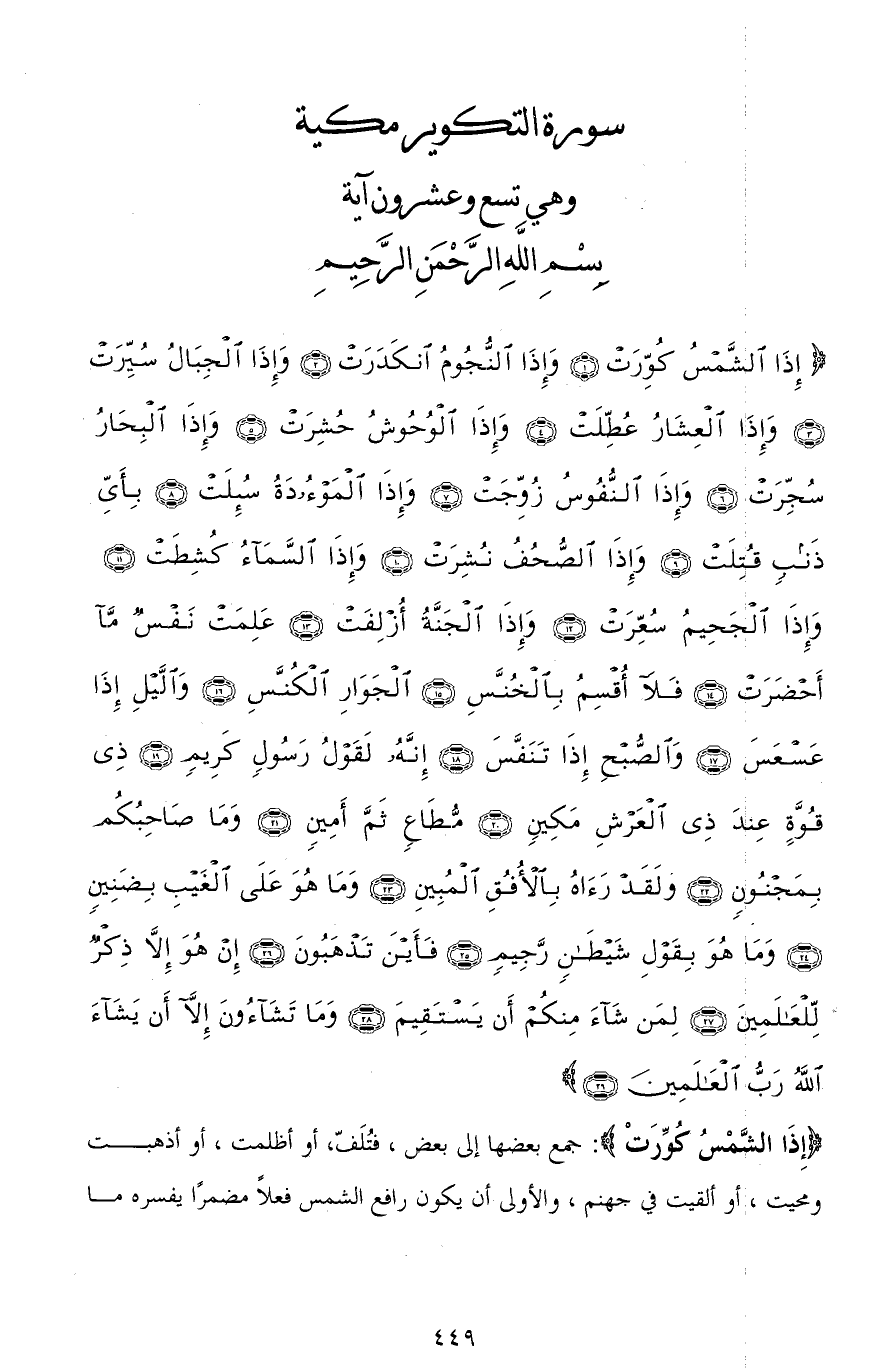 سورة التكوير مكية
وهي تسع وعشرون آية
بِسْمِ اللَّهِ الرَّحْمَنِ الرَّحِيمِ
﴿ إِذَا ٱلشَّمْسُ كُوِّرَتْ ١ وَإِذَا ٱلنُّجُومُ ٱنكَدَرَتْ ٢ وَإِذَا ٱلْجِبَالُ سُيِّرَتْ
٣ وَإِذَا ٱلْعِشَارُ عُطِّلَتْ ٤ وَإِذَا ٱلْوُحُوشُ حُشِرَتْ ٥ وَإِذَا ٱلْبِحَارُ
سُجِّرَتْ ٦ وَإِذَا ٱلنُّفُوسُ زُوِّجَتْ ٧ وَإِذَا ٱلْمَوْءُۥدَةُ سُئِلَتْ ٨ بِأَيِّ
ذَنۢبٍ قُتِلَتْ ٩ وَإِذَا ٱلصُّحُفُ نُشِرَتْ ١٠ وَإِذَا ٱلسَّمَآءُ كُشِطَتْ ١١
وَإِذَا ٱلْجَحِيمُ سُعِّرَتْ ١٢ وَإِذَا ٱلْجَنَّةُ أُزْلِفَتْ ١٣ عَلِمَتْ نَفْسٌ مَّآ
أَحْضَرَتْ ١٤ فَلَآ أُقْسِمُ بِٱلْخُنَّسِ ١٥ ٱلْجَوَارِ ٱلْكُنَّسِ ١٦ وَٱلَّيْلِ إِذَا
عَسْعَسَ ١٧ وَٱلصُّبْحِ إِذَا تَنَفَّسَ ١٨ إِنَّهُۥ لَقَوْلُ رَسُولٍ كَرِيمٍ ١٩ ذِى
قُوَّةٍ عِندَ ذِى ٱلْعَرْشِ مَكِينٍ ٢٠ مُّطَاعٍ ثَمَّ أَمِينٍ ٢١ وَمَا صَاحِبُكُم
بِمَجْنُونٍ ٢٢ وَلَقَدْ رَءَاهُ بِٱلْأُفُقِ ٱلْمُبِينِ ٢٣ وَمَا هُوَ عَلَى ٱلْغَيْبِ بِضَنِينٍ
٢٤ وَمَا هُوَ بِقَوْلِ شَيْطَٰنٍ رَّجِيمٍ ٢٥ فَأَيْنَ تَذْهَبُونَ ٢٦ إِنْ هُوَ إِلَّا ذِكْرٌ
لِّلْعَٰلَمِينَ ٢٧ لِمَن شَآءَ مِنكُمْ أَن يَسْتَقِيمَ ٢٨ وَمَا تَشَآءُونَ إِلَّآ أَن يَشَآءَ
ٱللَّهُ رَبُّ ٱلْعَٰلَمِينَ ٢٩ ﴾
﴿إِذَا الشَّمْسُ كُوِّرَتْ ﴾: جمع بعضها إلى بعض ، فتُلَفّ، أو أظلمت ، أو أذهبت
ومحيت ، أو ألقيت في جهنم ، والأولى أن يكون رافع الشمس فعلاً مضمرًا يفسره ما
٤٤٩